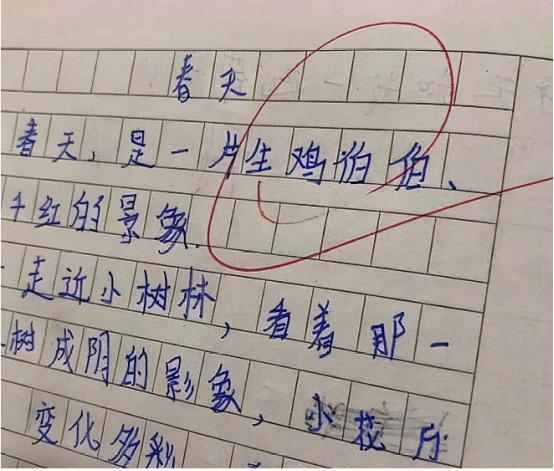 春天
春天,是一片生鸡伯伯、
千红的景象.
走近小树林,看着那一
树成阴的影象,小花
变化多